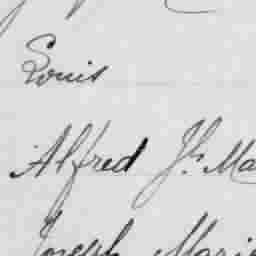 Louis
Alfred Jh. Ma
Joseph Marie